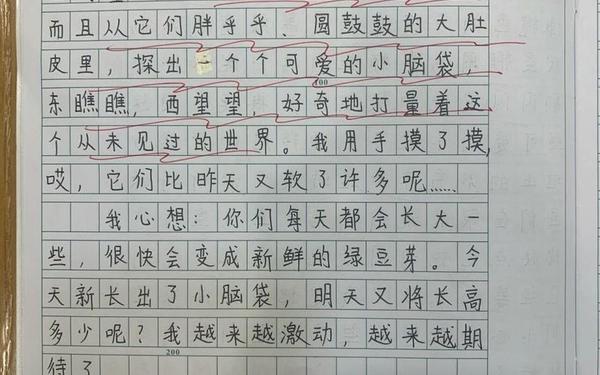 而且从它们胖乎乎、圆鼓鼓的大肚
皮里，探出一个个可爱的小脑袋，
100
东瞧瞧，西望望，好奇地打量着这
个从未见过的世界。我用手摸了摸，
哎，它们比昨天又软了许多呢……
我心想：你们每天都会长大一
些，很快会变成新鲜的绿豆芽。今
天新长出了小脑袋，明天又将长高
多少呢？我越来越激动，越来越期
200
待了